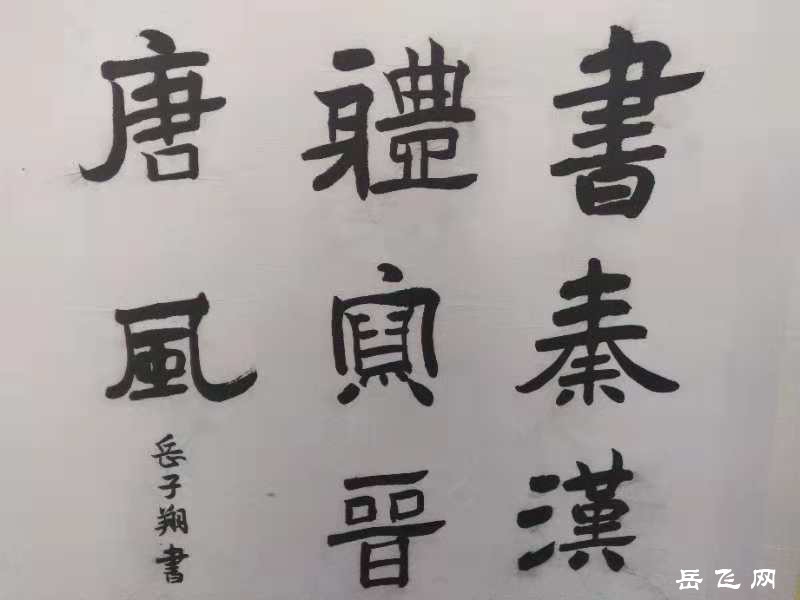 書秦漢
軆寫晉
唐風
岳子翔書
岳飞网